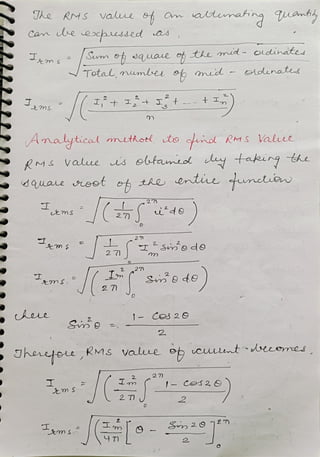 The RMS value of an alternating quantity
can be expressed as,
I_rms = √(Sum of square of the mid - ordinates / Total number of mid - ordinates)
I_rms = √((I₁² + I₂² + I₃² + ... + Iₙ²) / n)
Analytical method to find RMS Value
RMS value is obtained by taking the
square root of the entire function
I_rms = √(1/2π ∫₀^2π i² dθ)
I_rms = √(1/2π ∫₀^2π I_m² sin²θ dθ)
I_rms = √(I_m²/2π ∫₀^2π sin²θ dθ)
here
Sin²θ = (1 - cos2θ)/2
Therefore, RMS value of current becomes.
I_rms = √(I_m²/2π ∫₀^2π (1 - cos2θ)/2)
I_rms = √(I_m²/4π [θ - Sin2θ/2]₀^2π